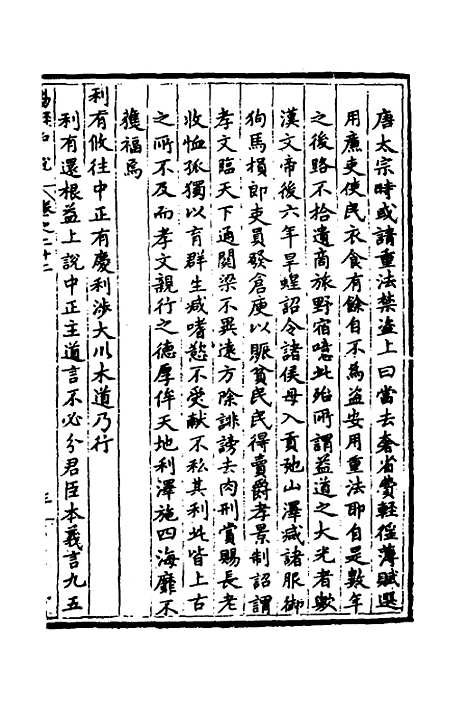 唐太宗時或請重法禁盜上曰當去奢省費輕徭薄賦選
用廉吏使民衣食有餘自不為盜安用重法耶自是數年
之後路不拾遺商旅野宿噫此殆所謂益道之大光者歟
漢文帝後六年旱蝗詔令諸侯毋入貢弛山澤減諸服御
狗馬損郎吏員發倉庾以賑貧民民得賣爵孝景制詔謂
孝文臨天下通關梁不異遠方除誹謗去肉刑賞賜長老
收恤孤獨以育群生減嗜慾不受獻不私其利此皆上古
之所不及而孝文親行之德厚侔天地利澤施四海靡不
獲福焉
利有攸往中正有慶利涉大川木道乃行
利有還根益上說中正主道言不必分君臣本義言九五
卷之二十二
三